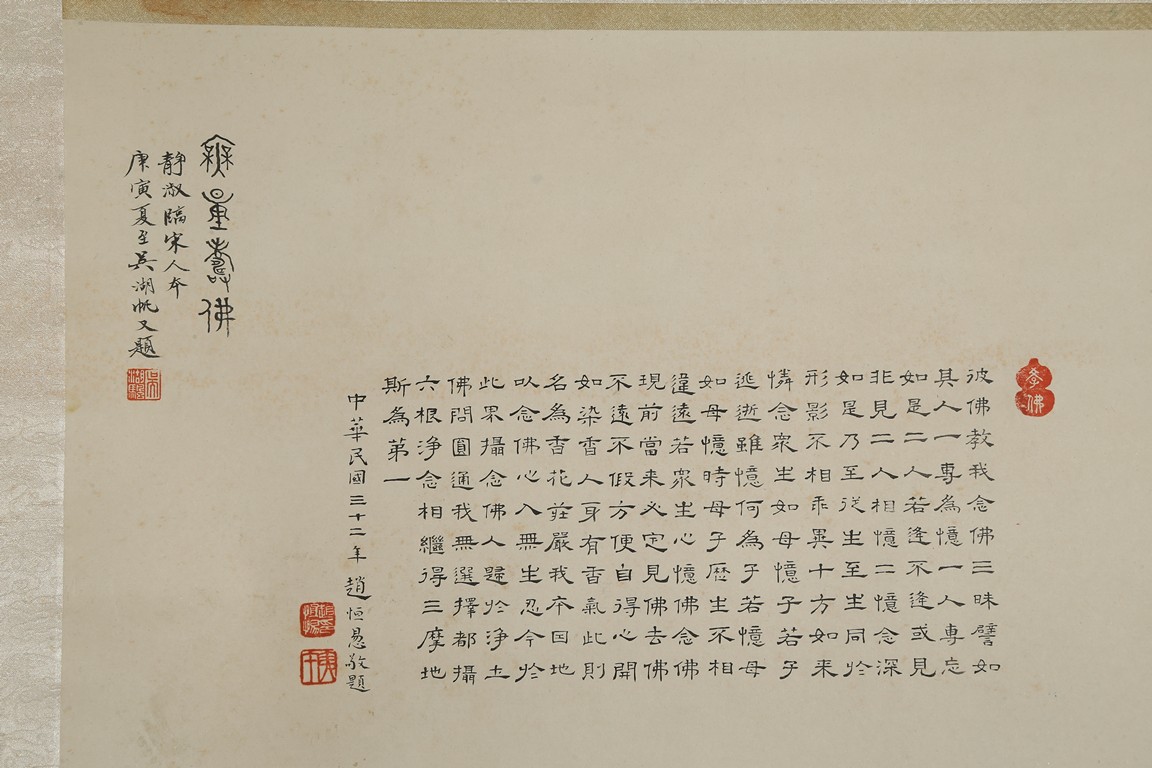 學佛
彼佛教我念佛三昧譬如
其人一專為憶一人專忘
如是二人若逢不逢或見
非見二人相憶二憶念深
如是乃至從生至生同於
形影不相乖異十方如來
憐念眾生如母憶子若子
逃逝雖憶何為子若憶母
如母憶時母子歷生不相
違遠若眾生心憶佛念佛
現前當來必定見佛去佛
不遠不假方便自得心開
如染香人身有香氣此則
名為香花莊嚴我本因地
以念佛心入無生忍今於
此界攝念佛人歸於淨土
佛問圓通我無選擇都攝
六根淨念相繼得三摩地
斯為第一
中華民國三十二年趙恒惖敬題
無量壽佛
靜淑臨宋人本
庚寅夏至吳湖帆又題